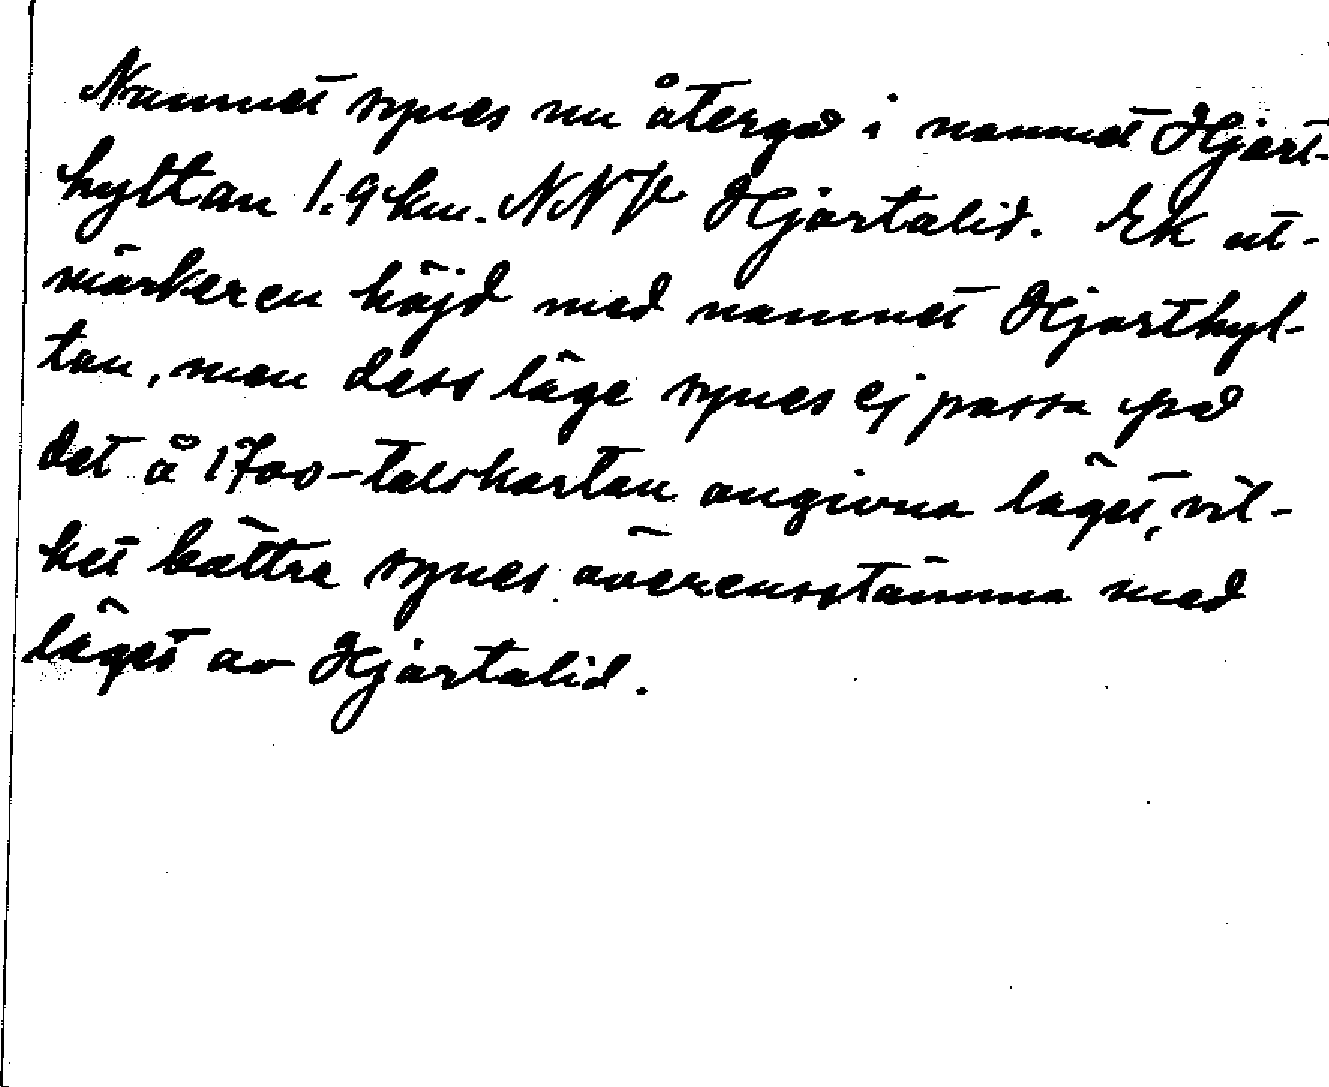 Namnet synes nu återgå i namnet Hjort-
hyltan 1.9 km. NNV Hjortalid. Ek ut-
märker en höjd med namnet Hjorthyl-
tan, men dess läge synes ej passa på
det å 1700-talskartan angivna läget, vil-
ket bättre synes överensstämma med
läget av Hjortalid.